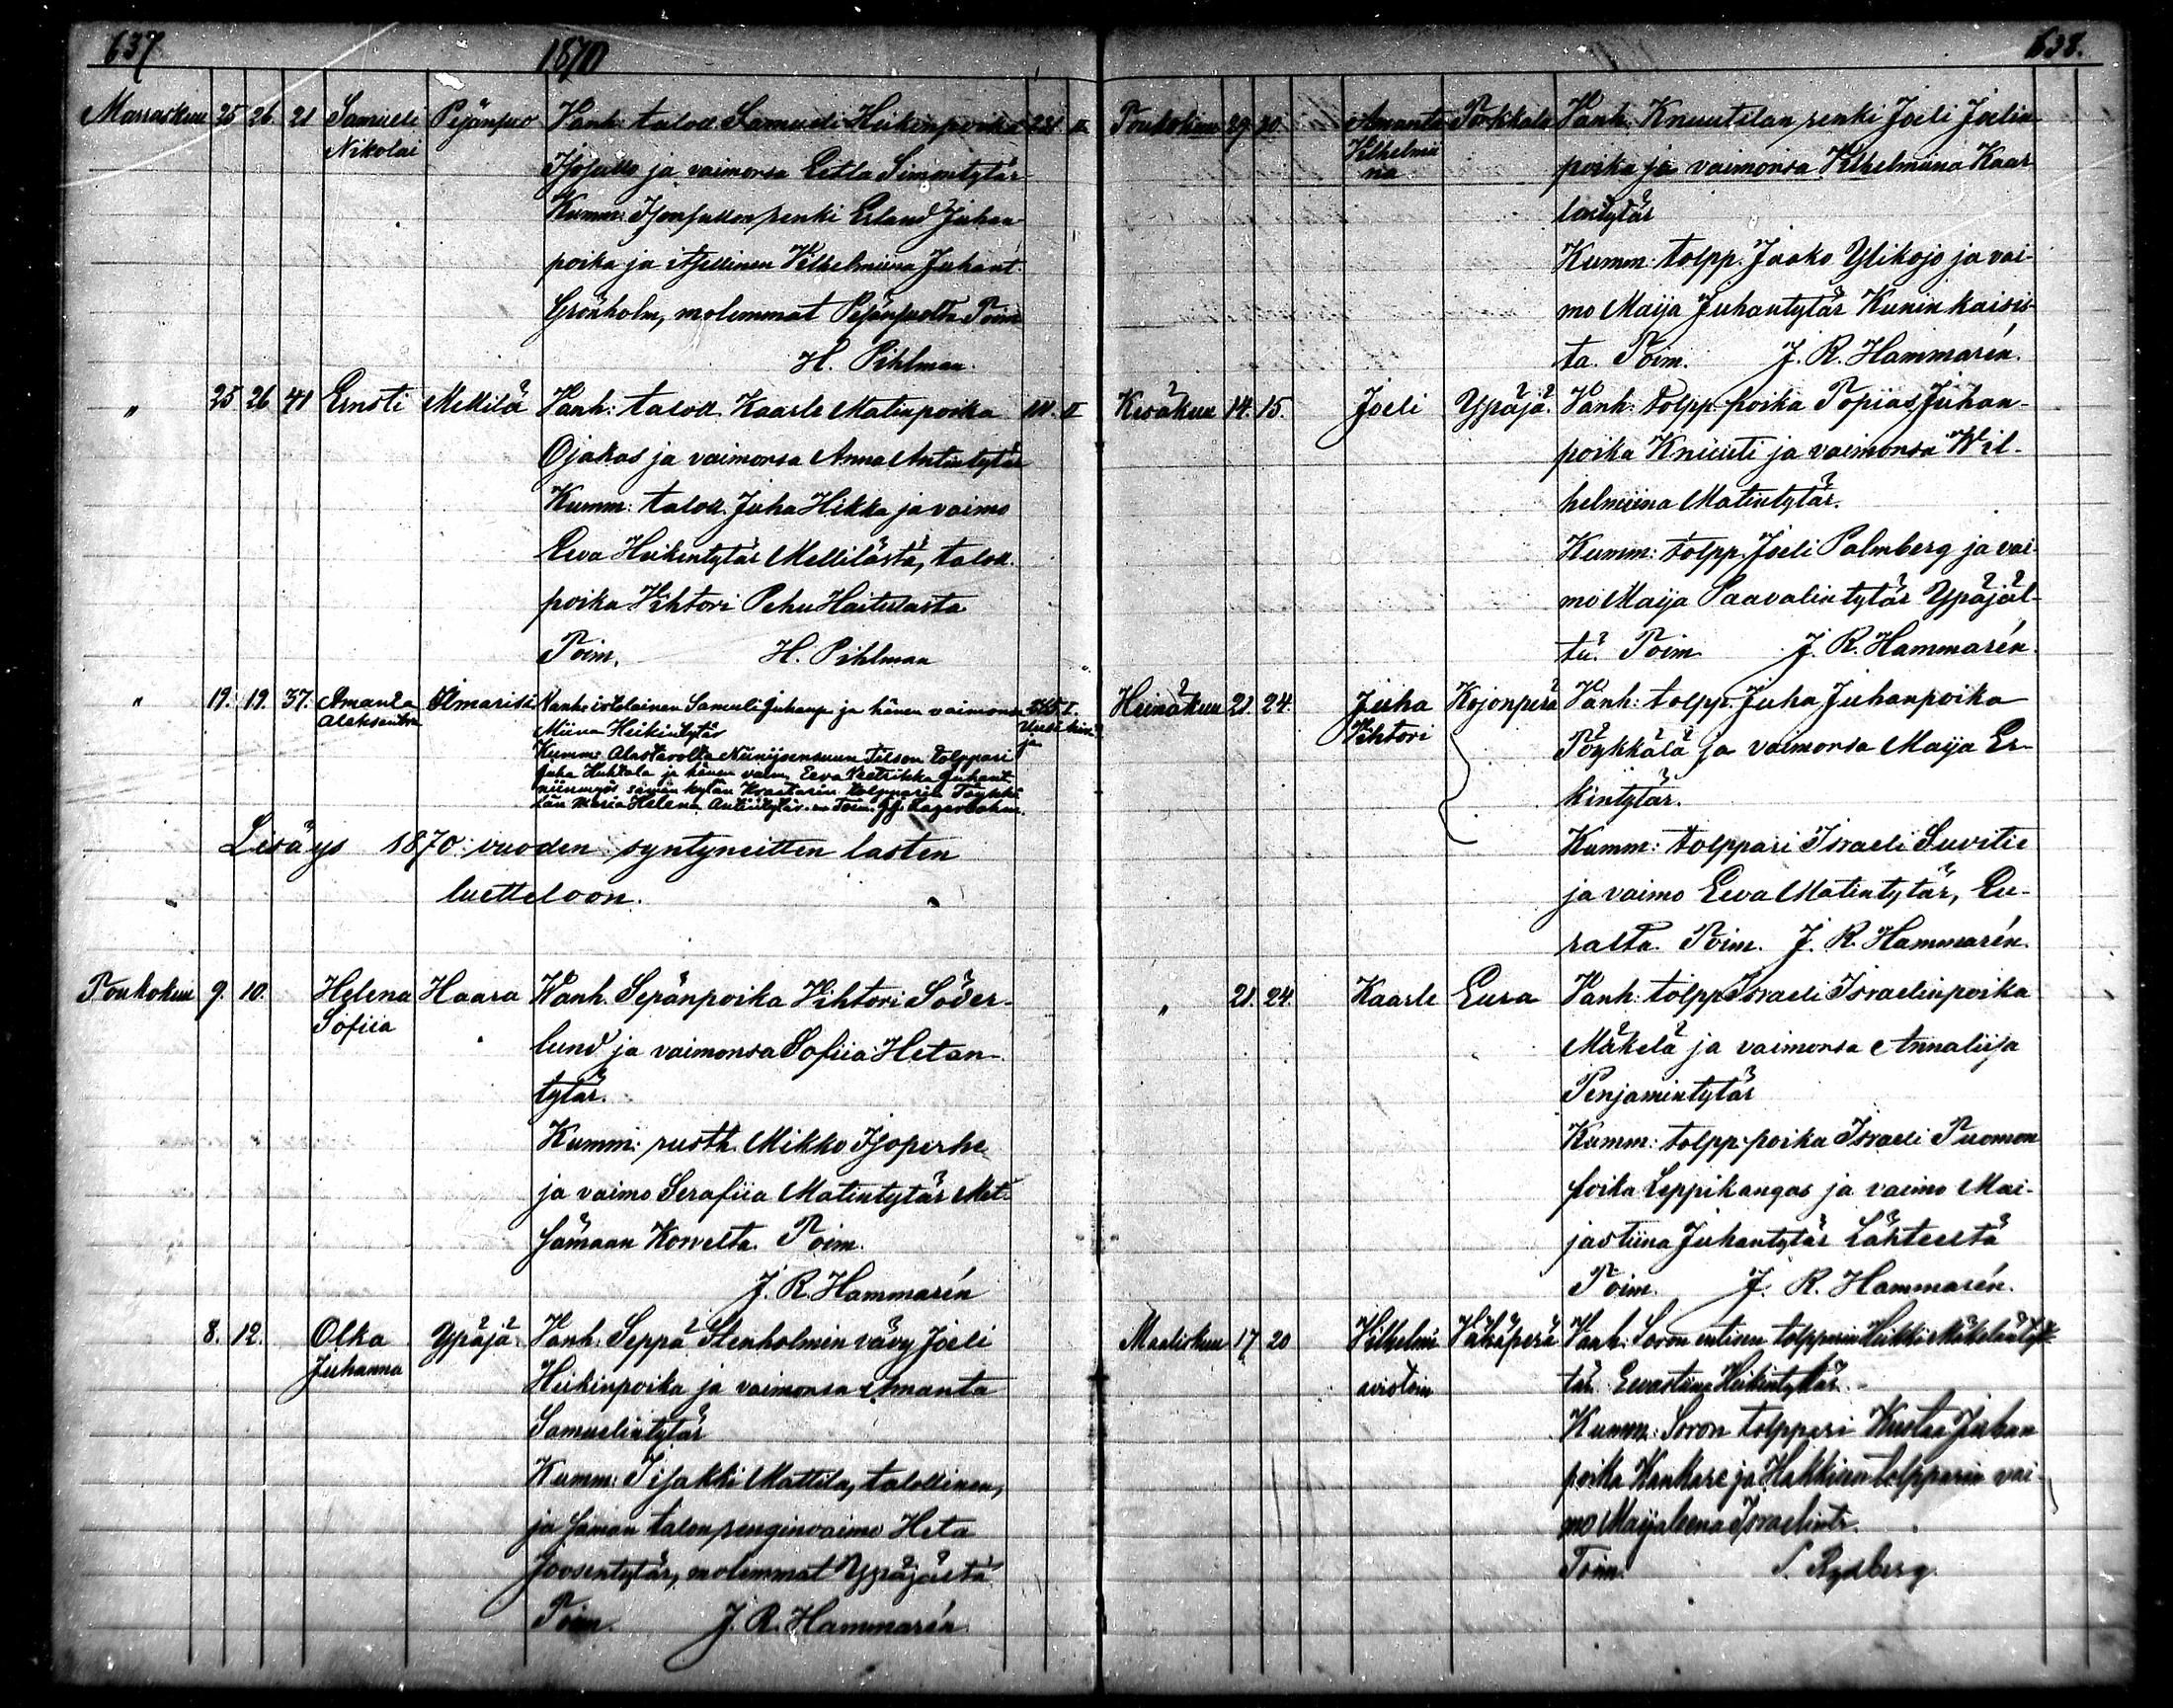 637.
1870
Marraskuu 25 26 21 Samueli Pejänsuo Vanh: taloll. Samueli Heikinpoika 228 II
Nikolai Isosallo ja vaimonsa Eetla Simontytär
Kumm: Isonsallon renki Erland Juhan-
poika ja itsellinen Vilhelmiina Juhant.
Grönholm, molemmat Pejänsuolta Toim
H. Pihlman.
" 25 26 41 Ernsti Mellilä Vanh: taloll. Kaarle Matinpoika II
Ojakas ja vaimonsa Anna Antintytär
Kumm: taloll. Juha Hikka ja vaimo
Eeva Heikintytär Mellilästä, taloll.
poika Vihtori Pehu Haitulasta
Toim. H. Pihlman
" 19. 19. 37. Amanta Vanh: itolainen Samuli Juhanp. ja hänen vaimonsa 565 I.
Aleksantra Miina Heikintytär Uusi kirja
Kumm: Alastarolta Niinijoensuun tolppari
Juha Huhtala ja hänen vaim. Eeva Juhant.
niinmyös saman kylän tolpparin
Maria Helena Antintytär. Toim.
Lisäys 1870 vuoden syntyneitten lasten
luetteloon.
Toukokuu 9. 10. Helena Haara Vanh. Sepänpoika Vihtori Söder-
Sofiia lund ja vaimonsa Sofiia Hetan-
tytär.
Kumm: rusth. Mikko Isoperhe
ja vaimo Serafiia Matintytär Met-
sämaan Korvelta. Toim.
J. R. Hammarén
8. 12. Olka Ypäjä Vanh: Seppä Stenholmin vävy Joeli
Juhanna Heikinpoika ja vaimonsa Amanta
Samuelintytär
Kumm: Iisakki Mattila, talollinen,
ja saman talon renginvaimo Heta
Joosentytär, molemmat Ypäjästä
Toim. J. R. Hammarén
638.
Toukokuu 29. 30. Amanta Porkkala Vanh: Knuutilan renki Joeli Joelin
Vilhelmii poika ja vaimonsa Vilhelmiina Kaar
na lontytär
Kumm: tolpp. Jaako Ylikojo ja vai-
mo Maija Juhantytär Kuninkaisis-
ta. Toim. J. R. Hammarén.
Kesäkuu 14. 15. Joeli Ypäjä. Vanh: tolpp. poika Topias Juhan-
poika Knuuti ja vaimonsa Wil-
helmiina Matintytär.
Kumm: tolpp. Joeli Palmberg ja vai-
mo Maija Paavalintytär Ypäjäl-
tä. Toim. J. R. Hammarén.
Heinäkuu 21. 24. Juha Kojonperä Vanh: tolpp. Juha Juhanpoika
Vihtori Pöykkälä ja vaimonsa Maija Er-
kintytär.
Kumm: tolppari Israeli Suvitie
ja vaimo Eeva Matintytär, Eu-
ralta. Toim. J. R. Hammarén.
" 21. 24. Kaarle Eura Vanh: tolpp. Israeli Israelinpoika
Mäkelä ja vaimonsa Annaliisa
Penjamintytär
Kumm: tolpp. poika Israeli Tuomon
poika Leppikangas ja vaimo Mai-
jastiina Juhantytär Lähteeltä
Toim. J. R. Hammarén.
Maaliskuu 17 20 Vilhelmi Vanh: Soron entisen tolpparin Heikki Mäkelän tyt
aviotoin tär Eevastiina Heikintytär.
Kumm: Soron tolppari Kustaa Juhan
poika Kankare ja Hakkisen tolpparin vai
mo Maijaleena Israelint.
Toim. S. Rydberg.